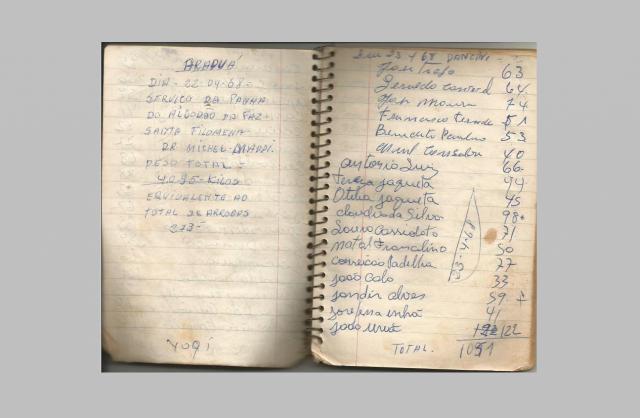 ARAPUÁ
DIA - 22-04-68=
SERVIÇO DA PANHA
DO ALGODÃO DA FAZ=
SANTA FILOMENA
DR MICHEL
PESO TOTAL =
4095-KILOS
EQUIVALENTE AO
TOTAL DE ARROBAS
273=
YOQI
DIA 23 4 68
José 63
Geraldo 64
José Moura 74
Francisco 51
Benedito 53
40
Antonio Luiz 66
Tereza Jaqueta 94
Otilia Jaqueta 45
Claudio da Silva 98
Louro 71
Natal Francelino 50
Conceicão Padelha 77
João Calo 33
Jandir Alves 59
41
João 122
TOTAL. 1051
23-4-68